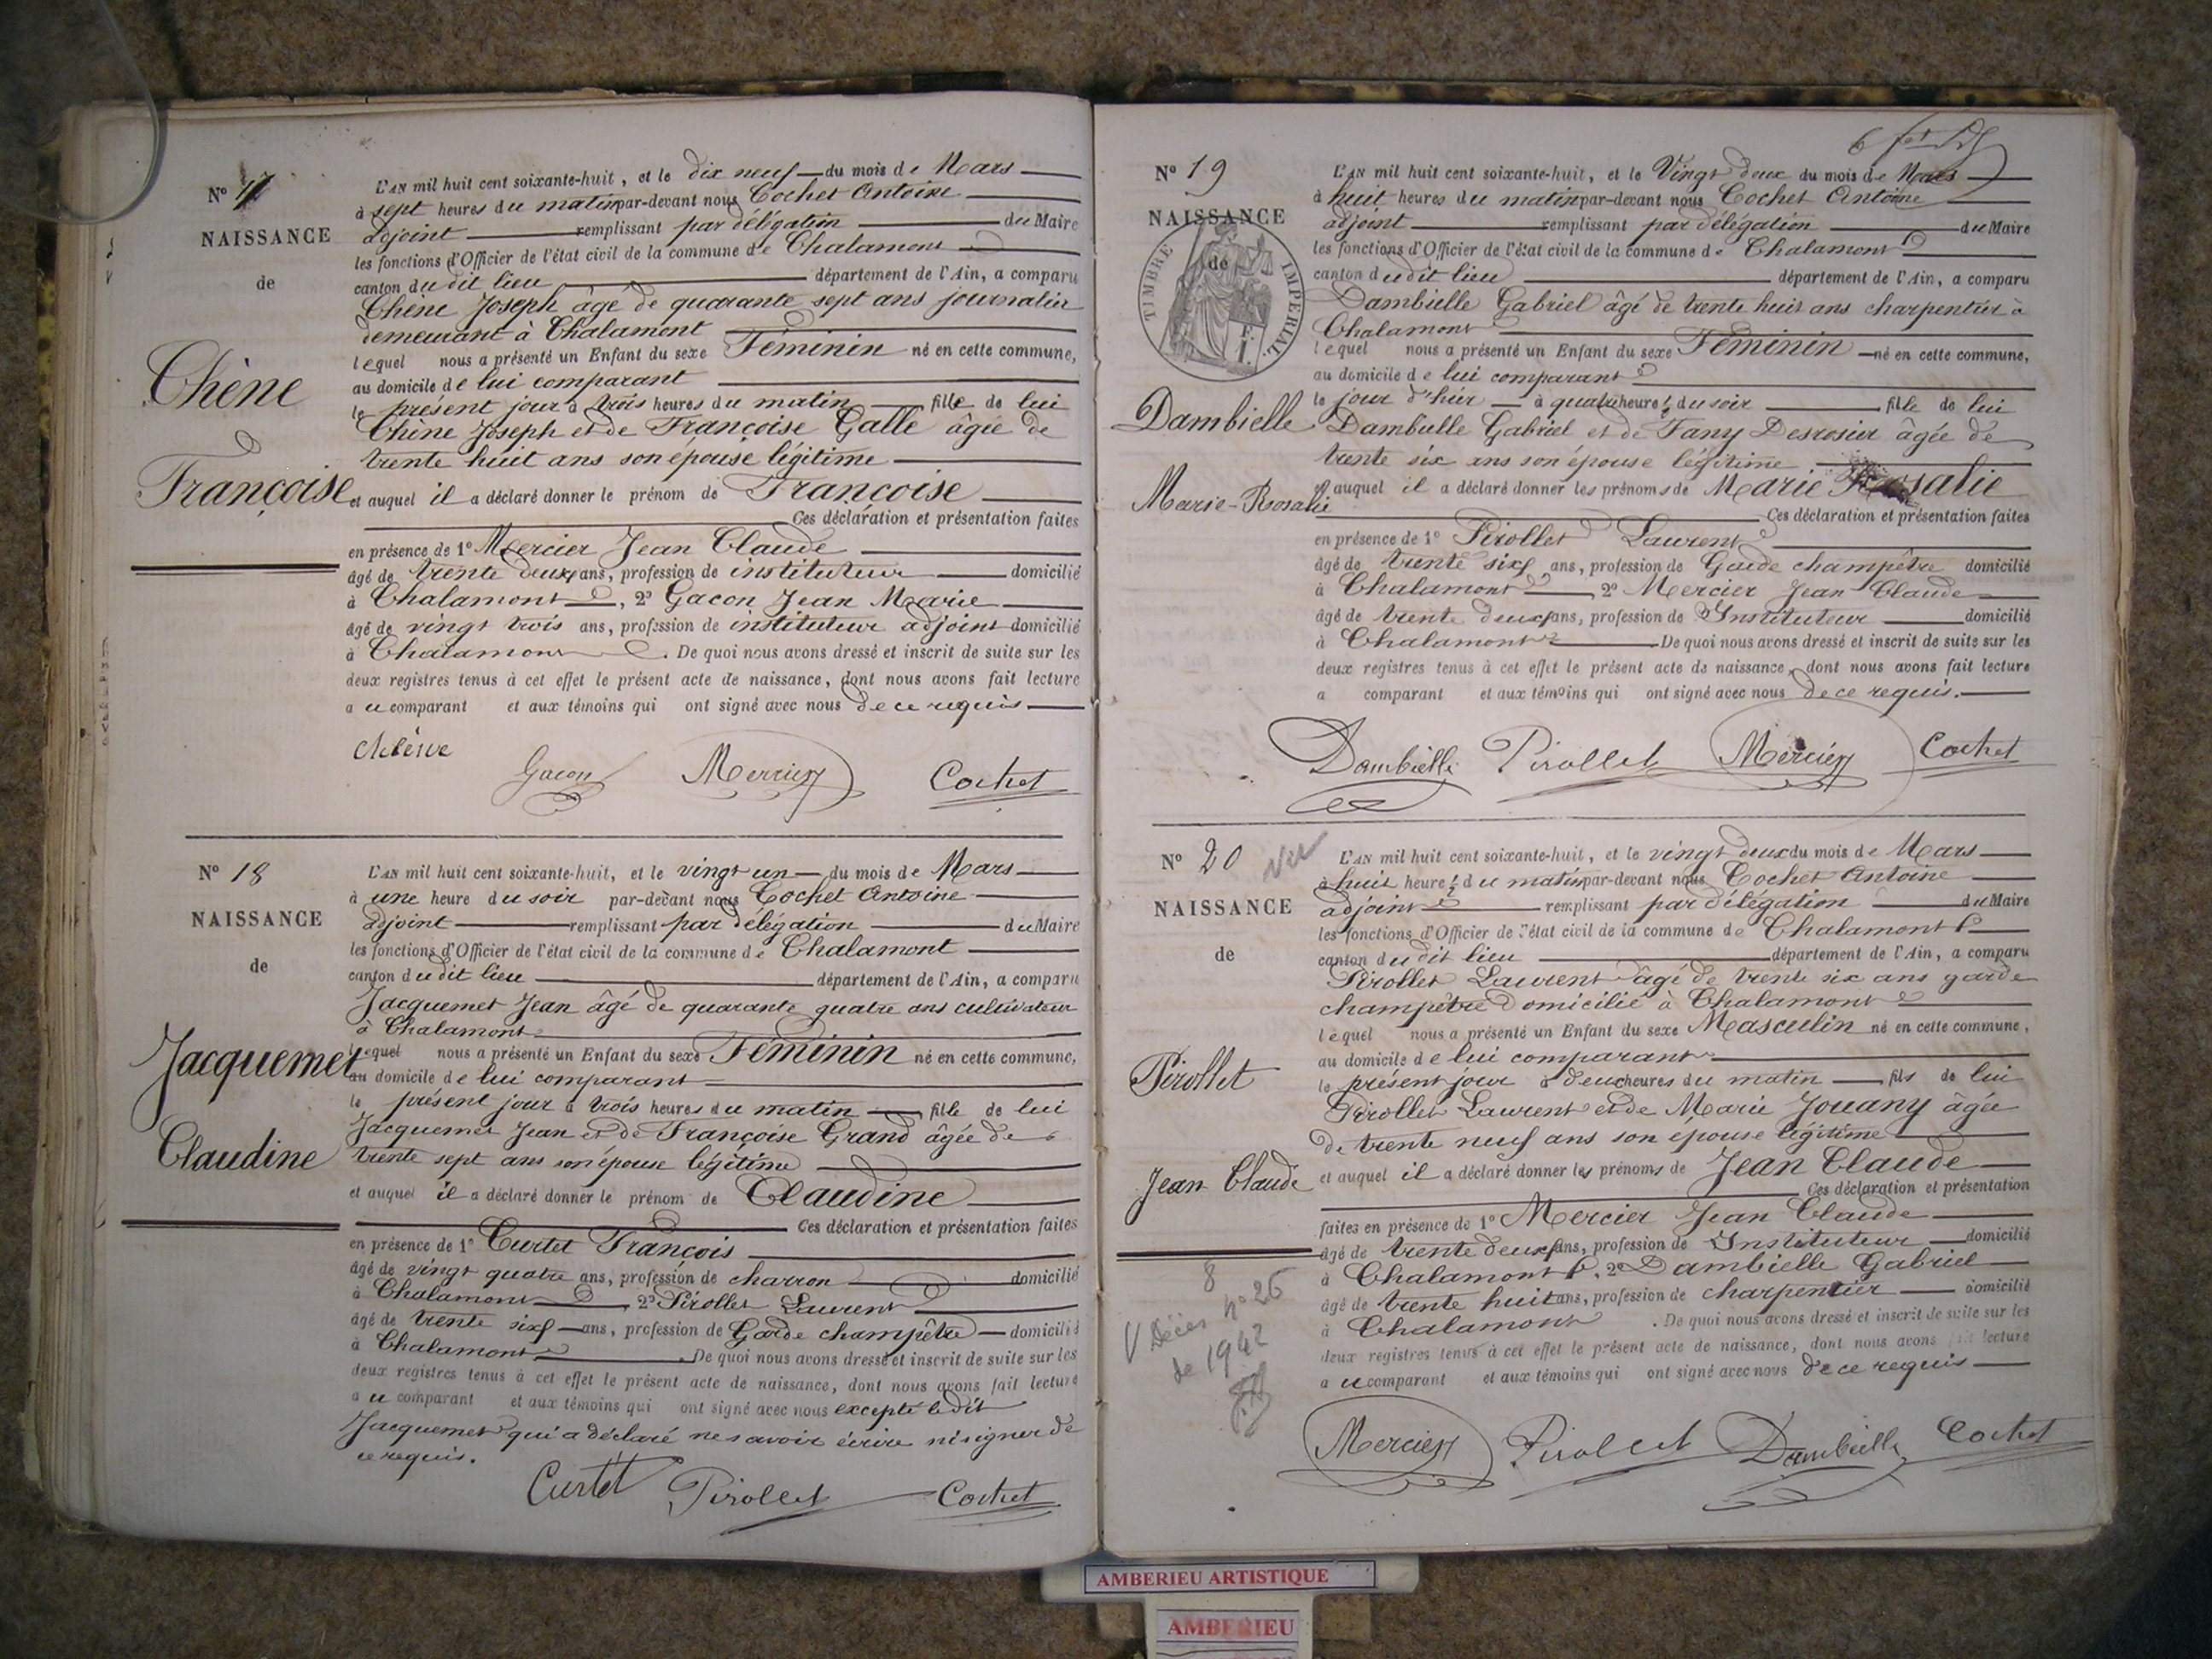 N° 17
NAISSANCE
de
Chêne
Françoise
L'AN mil huit cent soixante-huit, et le dix neuf du mois de Mars
à sept heures du matin par-devant nous Cochet Antoine
adjoint remplissant par délégation du Maire
les fonctions d'Officier de l'état civil de la commune de Chalamont
canton du dit lieu département de l'Ain, a comparu
Chêne Joseph âgé de quarante sept ans journalier
demeurant à Chalamont
lequel nous a présenté un Enfant du sexe Féminin né en cette commune,
au domicile de lui comparant
le présent jour à trois heures du matin fille de lui
Chêne Joseph et de Françoise Galle âgée de
trente huit ans son épouse légitime
et auquel il a déclaré donner le prénom de Françoise
Ces déclaration et présentation faites
en présence de 1° Mercier Jean Claude
âgé de trente deux ans, profession de instituteur domicilié
à Chalamont, 2° Gacon Jean Marie
âgé de vingt trois ans, profession de instituteur adjoint domicilié
à Chalamont. De quoi nous avons dressé et inscrit de suite sur les
deux registres tenus à cet effet le présent acte de naissance, dont nous avons fait lecture
au comparant et aux témoins qui ont signé avec nous de ce requis
Chêne Gacon Mercier Cochet
N° 18
NAISSANCE
de
Jacquemet
Claudine
L'AN mil huit cent soixante-huit, et le vingt un du mois de Mars
à une heure du soir par-devant nous Cochet Antoine
adjoint remplissant par délégation du Maire
les fonctions d'Officier de l'état civil de la commune de Chalamont
canton du dit lieu département de l'Ain, a comparu
Jacquemet Jean âgé de quarante quatre ans cultivateur
à Chalamont
lequel nous a présenté un Enfant du sexe Féminin né en cette commune,
au domicile de lui comparant
le présent jour à trois heures du matin fille de lui
Jacquemet Jean et de Françoise Grand âgée de
trente sept ans son épouse légitime
et auquel il a déclaré donner le prénom de Claudine
Ces déclaration et présentation faites
en présence de 1° Curtet François
âgé de vingt quatre ans, profession de charron domicilié
à Chalamont, 2° Pirollet Laurent
âgé de trente six ans, profession de Garde champêtre domicilié
à Chalamont. De quoi nous avons dressé et inscrit de suite sur les
deux registres tenus à cet effet le présent acte de naissance, dont nous avons fait lecture
au comparant et aux témoins qui ont signé avec nous excepté le dit
Jacquemet qui a déclaré ne savoir écrire ni signer de
ce requis.
Curtet Pirollet Cochet
N° 19
NAISSANCE
de
TIMBRE IMPERIAL
Dambielle
Marie-Rosalie
L'AN mil huit cent soixante-huit, et le Vingt deux du mois de Mars
à huit heures du matin par-devant nous Cochet Antoine
adjoint remplissant par délégation du Maire
les fonctions d'Officier de l'état civil de la commune de Chalamont
canton du dit lieu département de l'Ain, a comparu
Dambielle Gabriel âgé de trente huit ans charpentier à
Chalamont
lequel nous a présenté un Enfant du sexe Féminin né en cette commune,
au domicile de lui comparant
le jour d'hier à quatre heure ½ du soir fille de lui
Dambielle Gabriel et de Fany Desrosier âgée de
trente six ans son épouse légitime
et auquel il a déclaré donner les prénoms de Marie Rosalie
Ces déclaration et présentation faites
en présence de 1° Pirollet Laurent
âgé de trente six ans, profession de Garde champêtre domicilié
à Chalamont, 2° Mercier Jean Claude
âgé de trente deux ans, profession de Instituteur domicilié
à Chalamont. De quoi nous avons dressé et inscrit de suite sur les
deux registres tenus à cet effet le présent acte de naissance, dont nous avons fait lecture
a comparant et aux témoins qui ont signé avec nous de ce requis.
Dambielle Pirollet Mercier Cochet
N° 20
NAISSANCE
de
Pirollet
Jean Claude
Décès n° 26
de 1942
L'AN mil huit cent soixante-huit, et le vingt deux du mois de Mars
à huit heure ½ du matin par-devant nous Cochet Antoine
adjoint remplissant par délégation du Maire
les fonctions d'Officier de l'état civil de la commune de Chalamont
canton du dit lieu département de l'Ain, a comparu
Pirollet Laurent âgé de trente six ans garde
champêtre domicilié à Chalamont
lequel nous a présenté un Enfant du sexe Masculin né en cette commune,
au domicile de lui comparant
le présent jour à deux heures du matin fils de lui
Pirollet Laurent et de Marie Jouany âgée
de trente neuf ans son épouse légitime
et auquel il a déclaré donner les prénoms de Jean Claude
Ces déclaration et présentation
faites en présence de 1° Mercier Jean Claude
âgé de trente deux ans, profession de Instituteur domicilié
à Chalamont, 2° Dambielle Gabriel
âgé de trente huit ans, profession de charpentier domicilié
à Chalamont. De quoi nous avons dressé et inscrit de suite sur les
deux registres tenus à cet effet le présent acte de naissance, dont nous avons fait lecture
au comparant et aux témoins qui ont signé avec nous de ce requis
Mercier Pirollet Dambielle Cochet
AMBERIEU ARTISTIQUE
AMBERIEU